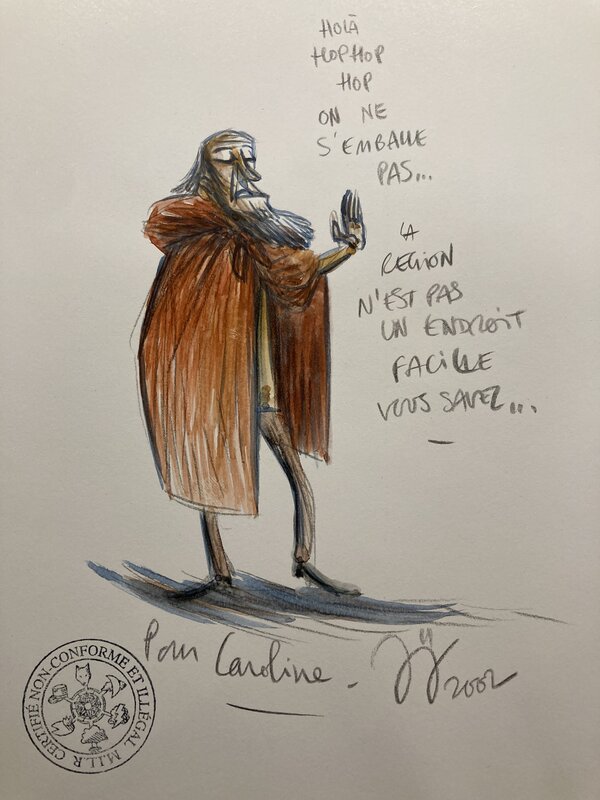 HOLÀ
HOPHOP
HOP
ON NE
S'EMBALLE
PAS...
LA
REGION
N'EST PAS
UN ENDROIT
FACILE
VOUS SAVEZ...
Pour Caroline -
2002
CERTIFIÉ NON-CONFORME ET ILLÉGAL. M.I.L.R